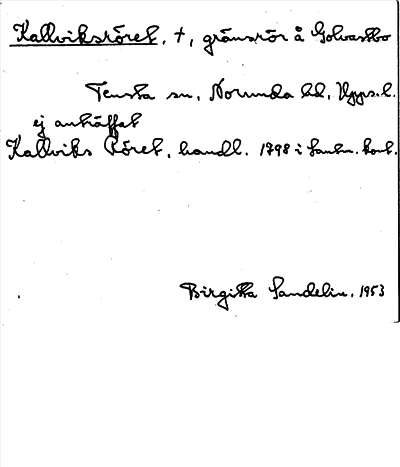 Kallviksröret, +, gränsrör å Golvastbo
Tensta sn, Norunda hd, Upps.l.
ej anträffat
Kallviks Röret, handl. 1798 i Lantm. kont.
Birgitta Sandelin, 1953